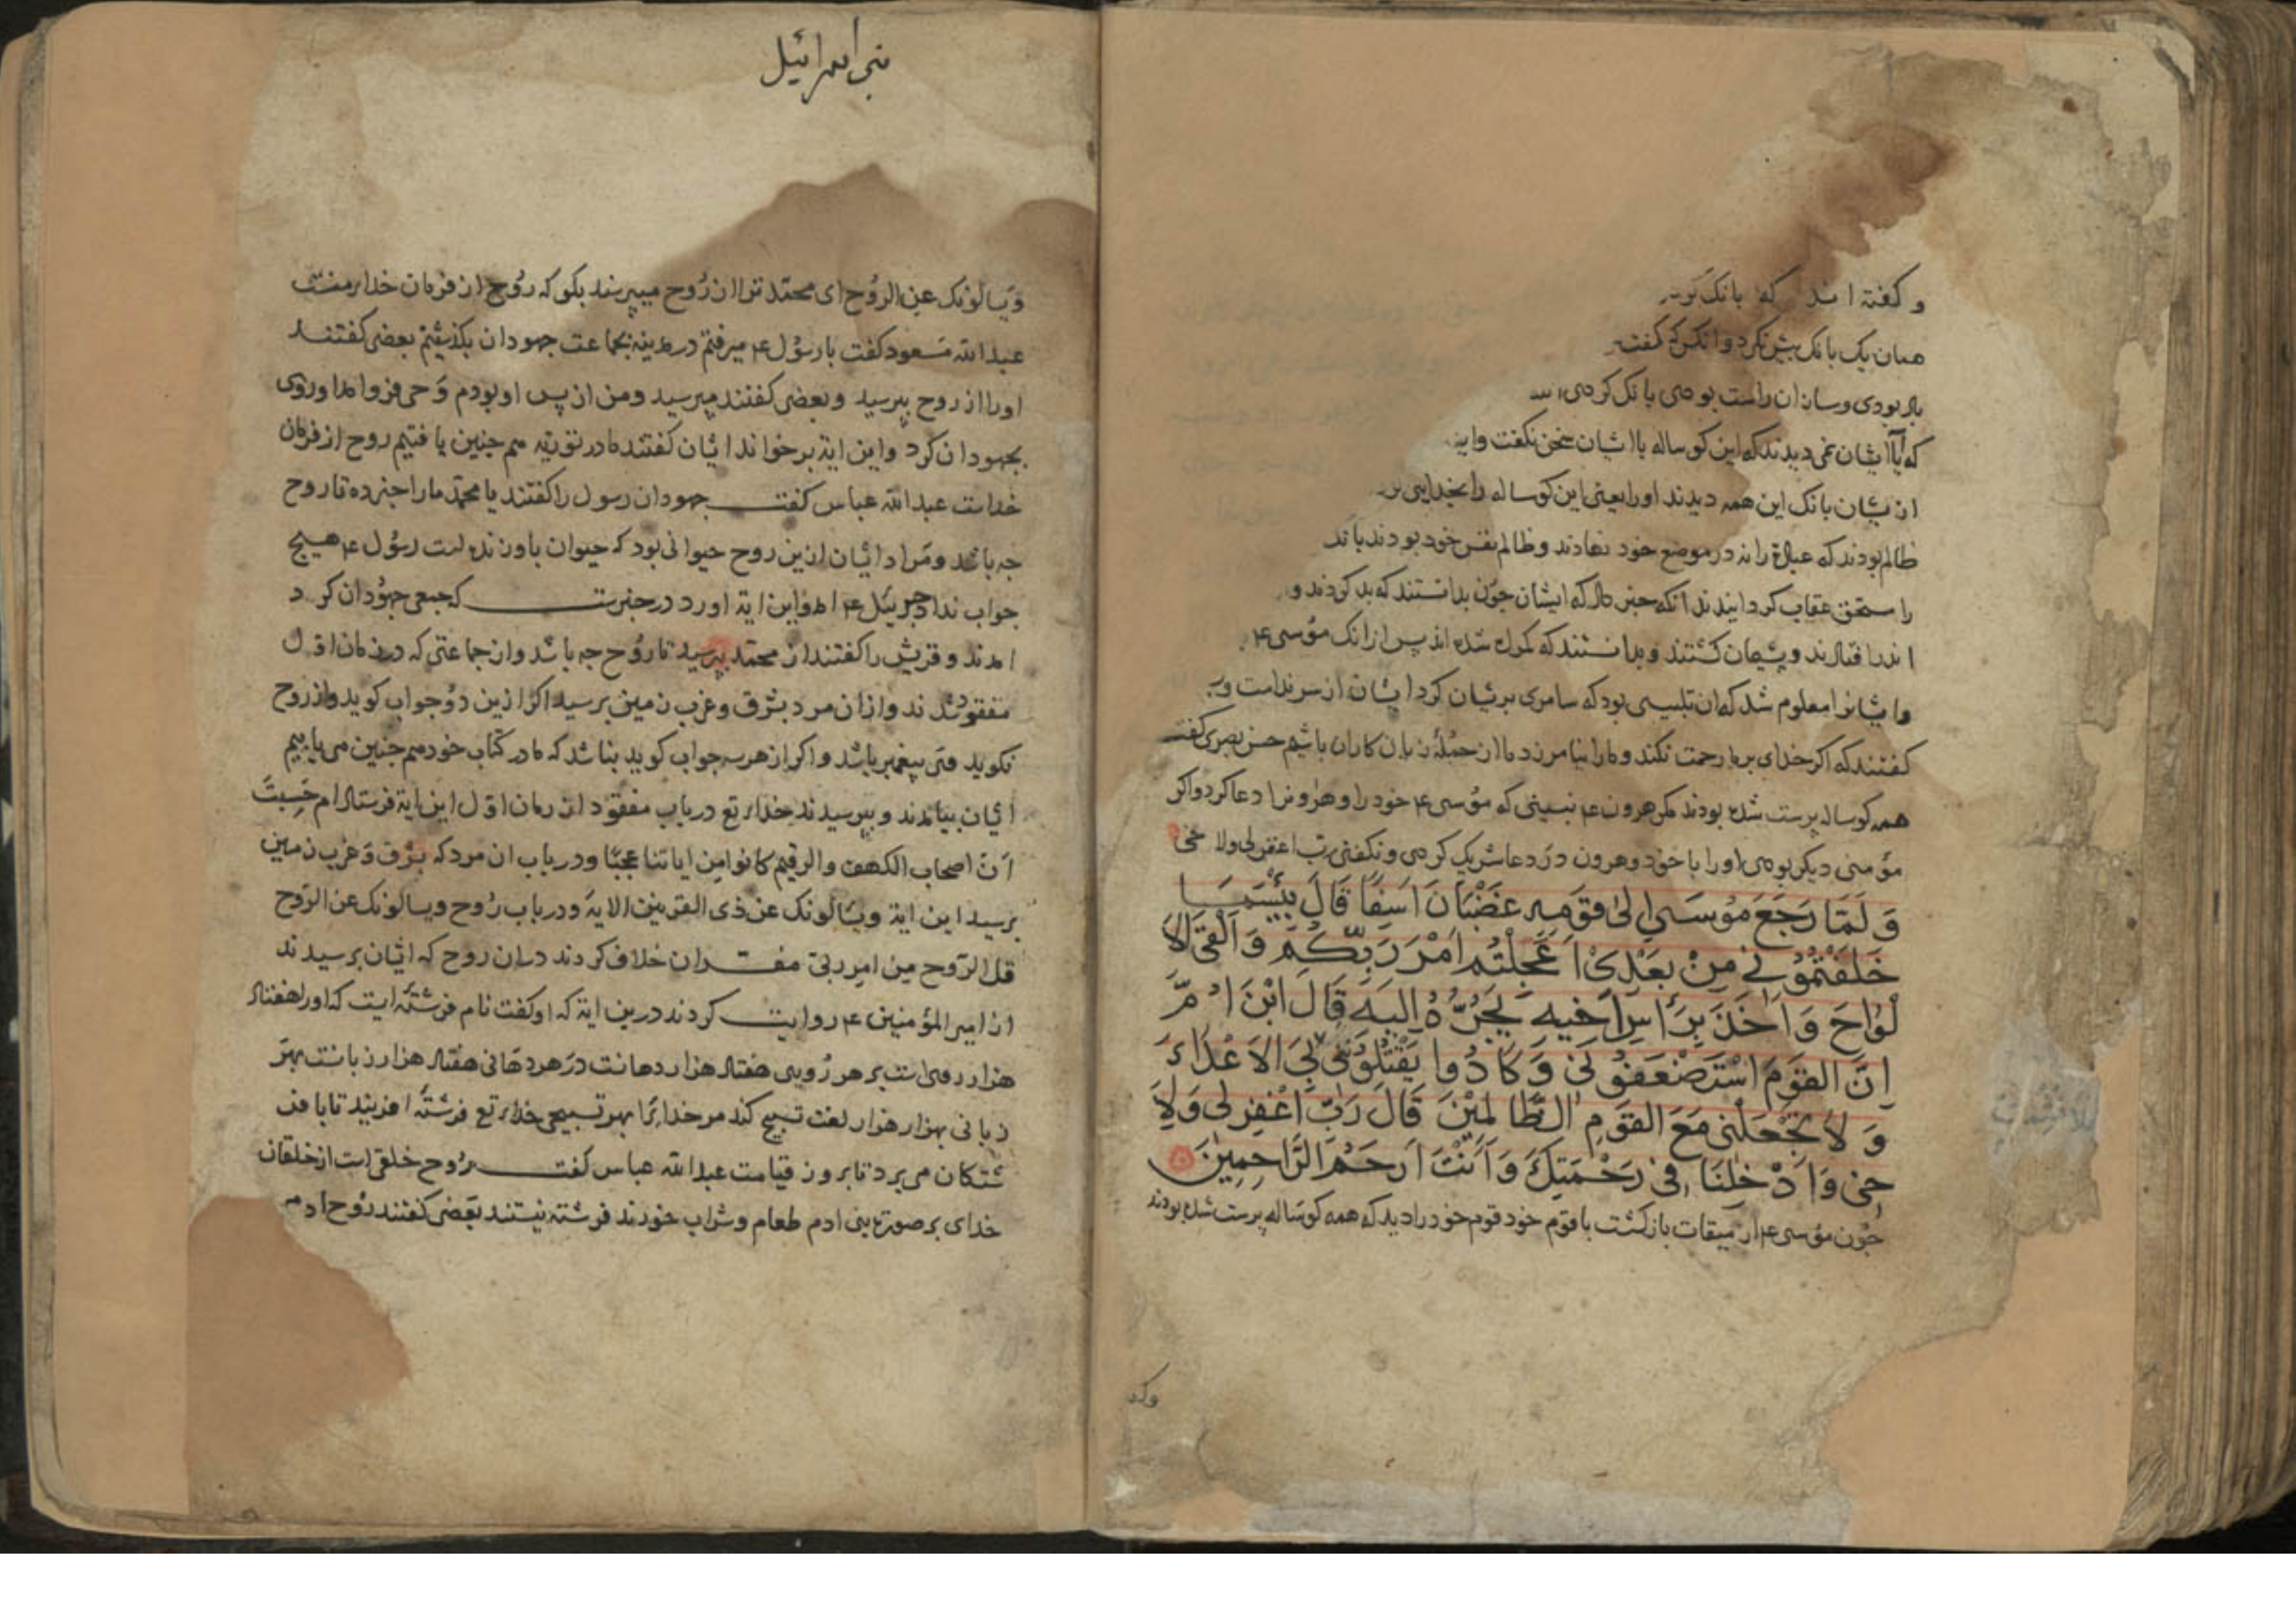 و کفته اند که بانک
همان یک بانک بیش نکرد وانکس که کفت
بودی وسازان راست بودی بانک کردی
که ایشان نمی دیدند که این کوساله باایشان سخن نکفت واین
ازیشان بانک این همه دیدند اورا یعنی این کوساله را بخدایی
ظالم بودند که عبادة را نه درموضع خود نهادند وظالم نفس خود بودند
را مستحق عقاب کردانیدند انکه خبر داد که ایشان جون بدانستند که بد کردند و
افتادند وپشیمان کشتند وبدانستند که کمراه شده اند پس ازانک مؤسی ع
وایشانرا معلوم شد که ان تلبیسی بود که سامری بریشان کرد ایشان از سر ندامت
کفتند که اکر خدای برما رحمت نکند ومارا نیامرزد ما از جملهٔ زیان کاران باشیم حسن بصری کفت
همه کوساله پرست شده بودند مکر هرون ع نبینی که مؤسی ع خود را وهرونرا دعا کرد واکر
مؤمنی دیکر بودی اورا با خود وهرون دردعا شریک کردی ونکفتی رب اغفرلی ولاخی
وَلَمَّا رَجَعَ مُوسَى إِلَى قَوْمِهِ غَضْبَانَ أَسِفًا قَالَ بِئْسَمَا
خَلَفْتُمُونِي مِنْ بَعْدِي أَعَجِلْتُمْ أَمْرَ رَبِّكُمْ وَأَلْقَى الْأَ
لْوَاحَ وَأَخَذَ بِرَأْسِ أَخِيهِ يَجُرُّهُ إِلَيْهِ قَالَ ابْنَ أُمَّ
إِنَّ الْقَوْمَ اسْتَضْعَفُونِي وَكَادُوا يَقْتُلُونَنِي فَلَا تُشْمِتْ بِيَ الْأَعْدَاءَ
وَلَا تَجْعَلْنِي مَعَ الْقَوْمِ الظَّالِمِينَ قَالَ رَبِّ اغْفِرْ لِي وَلِأَ
خِي وَأَدْخِلْنَا فِي رَحْمَتِكَ وَأَنْتَ أَرْحَمُ الرَّاحِمِينَ
جون مؤسی ع از میقات بازکشت باقوم خود قوم خود را دید که همه کوساله پرست شده بودند
وکد
بنی اسرائیل
وَیسالونک عن الروُح ای محمّد ترا از رُوح میپرسند بکو که رُوح از فرمان خدای منست
عبدالله مسعود کفت با رسوُل ع میرفتم در مدینه بجماعت جهودان بکذشتیم بعضی کفتند
اورا از روح بپرسید وبعضی کفتند مپرسید ومن از پس او بودم وَحی فروامد اوروی
بجهودان کرد واین ایة برخواند ایشان کفتند ما در توریة هم جنین یافتیم روح ازفرمان
خداست عبدالله عباس کفت جهودان رسول را کفتند یا محمّد مارا خبرده تا روح
جه باشد ومراد ایشان ازین روح حیوانی بود که حیوان باو زنده است رسوُل ع هیج
جواب نداد جبرئیل ع امد واین ایة اورد درخبرست که جمعی جهوُدان کرد
امدند وقریش را کفتند از محمّد بپرسید تا روُح جه باشد وازجماعتی که درزمان اوّل
مفقود شدند وازان مرد بشرق وغرب زمین برسید اکر ازین دوُ جواب کوید واز روح
نکوید وی پیغمبر باشد واکر از هرسه جواب کوید نباشد که ما در کتاب خود هم جنین می یابیم
ایشان بیامدند وبپرسیدند خدای تع درباب مفقود از زمان اوّل این ایة فرستاد ام حَسِبتَ
اَنّ اصحاب الکهف والرقیم کانوا من ایاتنا عجبًا ودرباب ان مرد که بشرق وَغرب زمین
برسید این ایة ویسَالونک عن ذی القرنین الایة ودرباب رُوح ویسالونک عن الرّوح
قل الرّوح من امر ربی مفسران خلاف کردند دران روح که ایشان برسیدند
از امیرالمؤمنین ع روایت کردند درین ایة که او کفت نام فرشتهٔ ایست که اورا هفتاد
هزار روی است بر هر رُویی هفتاد هزار دهانست درَ هر دهانی هفتاد هزار زبانست بهرَ
زبانی بهزار هزار لغت تسبیح کند مر خدایرا بهر تسبیحی خدای تع فرشتهٔ افریند تا با فر
شتکان می پرد تا بروز قیامت عبدالله عباس کفت رُوح خلقی است ازخلقان
خدای برصورة بنی ادم طعام وشراب خورند فرشته نیستند بَعضی کفتند رُوح ادم